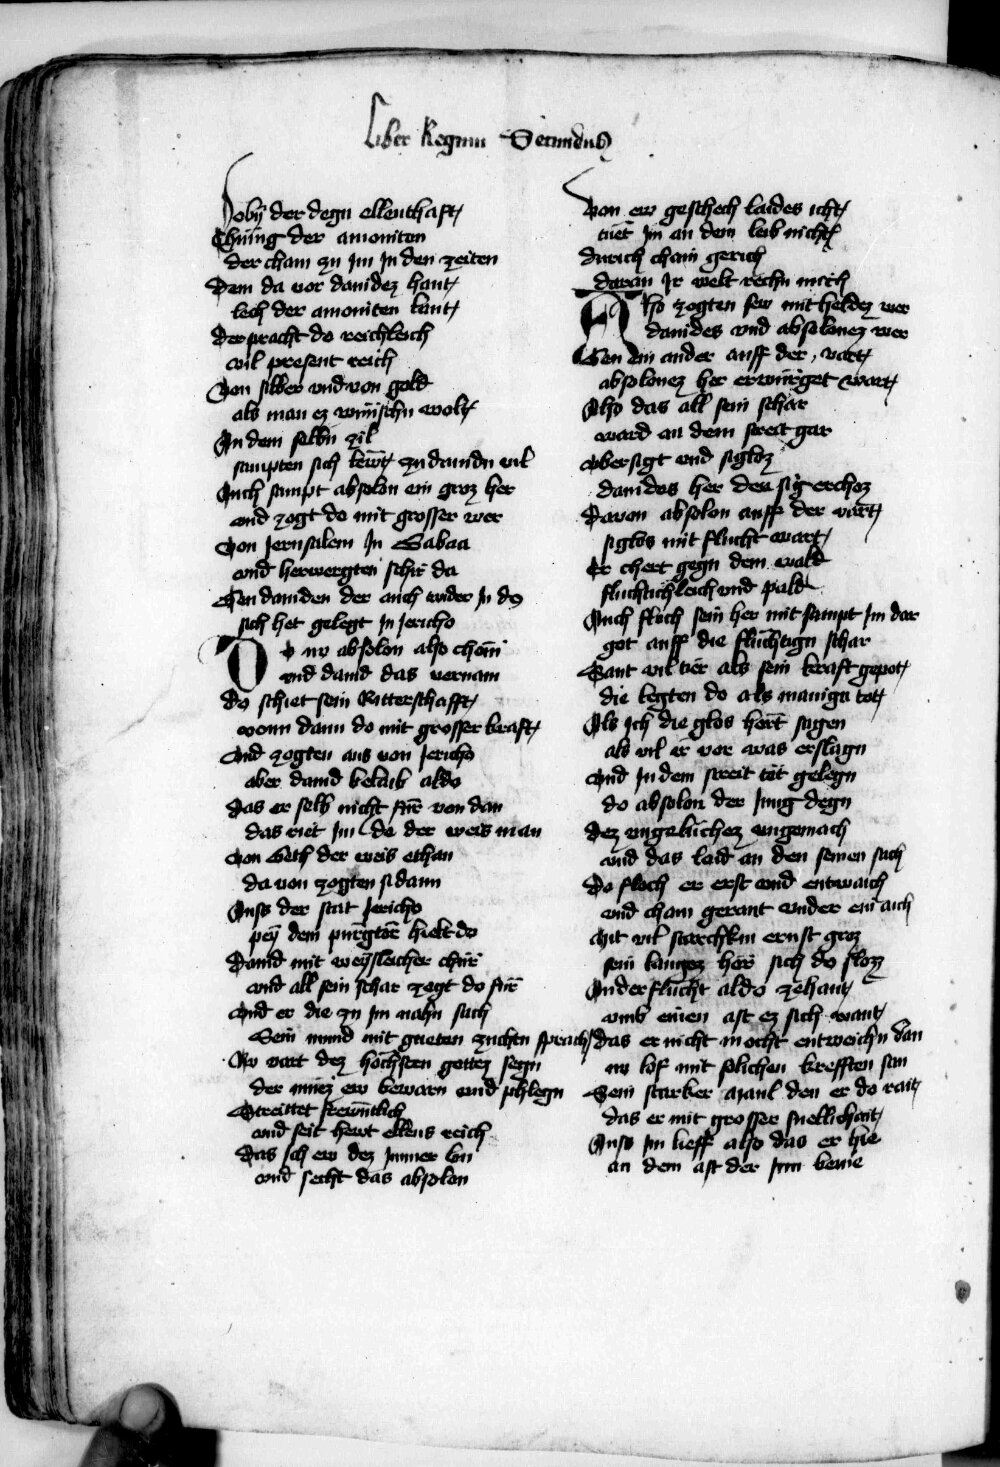 Liber Regum Secundus
Soby der degn ellenthaft
Chunig der amoniten
der cham zu im In den zeiten
Dem da vor dauidez hant
lech der amoniten lant
Der pracht do reichleich
vil present reich
Von silber vnd von gold
als man ez wunschn wolt
In dem selbn zil
sampten sich lewt zu dauidn vil
Auch sampt absolon ein groz her
vnd zogt do mit grosser wer
Von Jerusalem In Gabaa
vnd herwergten schir da
Gen dauiden der auch wider In do
sich het gelegt In Jericho
Do nv absolon also chom
vnd dauid das vernam
Do schiet sein Ritterschafft
vonn dann do mit grosser kraft
Vnd zogten aus von Jericho
aber dauid belaib aldo
Das er selb nicht fur von dan
das riet Im do der weis man
Von Geth der weis ethan
da von zogten si dann
Auss der stat Jericho
pey dem purgtor hielt do
Dauid mit weysleicher chur
vnd all sein schar zogt do fur
Vnd er die zu Im nahn sach
Sein mund mit gueten zuchten sprach
Nv vart dez hochsten gottez segn
der muez ew bewarn vnd phlegn
Streittet frewntlich
vnd seit hewt ellens reich
Das ich ew dez Immer lon
vnd secht das absolon
Von ew geschech laides icht
tuet Im an dem leib nicht
Durich chain gerich
daran Ir welt rechn mich
Also zogten sew mit heldez wer
dauides vnd absolonez wer
Gen ein ander auff der vart
absolonez her erwurget wart
Also das all sein schar
ward an dem streit gar
Obersigt vnd sigloz
dauides her den sig erchoz
Davon absolon auff der vart
siglos mit flucht wart
Er chert gegn dem wald
fluchtichleich vnd pald
Auch floch sein her mit sampt Im dar
got auff die fluchtign schar
Sant vil tier als sein kraft gepot
die legten do als manign tott
Als ich die glos hort sagen
als vil er vor was erslagn
Vnd In dem streit tot gelegn
do absolon der Jung degn
Dez vngeluchez vngemach
vnd das laid an den seinen sach
Do floch er erst vnd entwaich
vnd cham gerant vnder ein aich
Mit vil starchkm ernst groz
sein langez har sich do floz
In der flucht aldo zehant
vmb einen ast ez sich want
das er nicht mocht entweichn dan
nv lof mit solichen krefften san
Sein starker maul den er do rait
das er mit grosser snellichait
Auss Im lieff also das er hie
an dem ast der Inn bevie